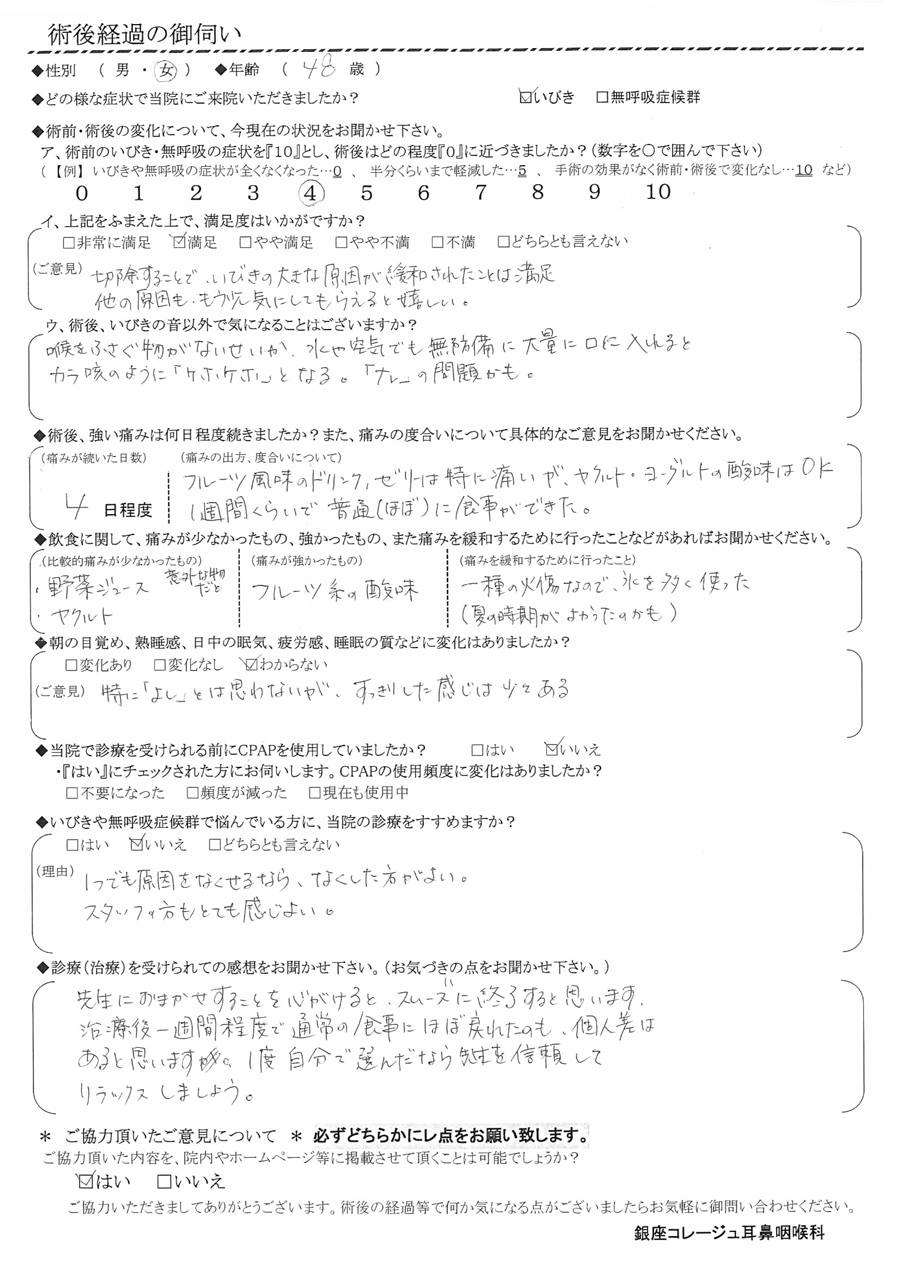 術後経過の御伺い
◆性別 ( 男 ・ 女 ) ◆年齢 ( 48 歳 )
◆どの様な症状で当院にご来院いただきましたか? ☑いびき □無呼吸症候群
◆術前・術後の変化について、今現在の状況をお聞かせ下さい。
ア、術前のいびき・無呼吸の症状を『10』とし、術後はどの程度『0』に近づきましたか?(数字を○で囲んで下さい)
(【例】 いびきや無呼吸の症状が全くなくなった…0 、 半分くらいまで軽減した…5 、 手術の効果がなく術前・術後で変化なし…10 など)
0 1 2 3 4 5 6 7 8 9 10
イ、上記をふまえた上で、満足度はいかがですか?
□非常に満足 ☑満足 □やや満足 □やや不満 □不満 □どちらとも言えない
(ご意見) 切除することで、いびきの大きな原因が緩和されたことは満足
他の原因も、もう少し気にしてもらえると嬉しい。
ウ、術後、いびきの音以外で気になることはございますか?
喉をふさぐ物がないせいか、水や空気でも無防備に大量に口に入れると
カラ咳のように「ケホケホ」となる。「ナレ」の問題かも。
◆術後、強い痛みは何日程度続きましたか?また、痛みの度合いについて具体的なご意見をお聞かせください。
(痛みが続いた日数) (痛みの出方、度合いについて)
フルーツ風味のドリンク、ゼリーは特に痛いが、ヤクルト・ヨーグルトの酸味はOK
4 日程度 1週間くらいで普通(ほぼ)に食事ができた。
◆飲食に関して、痛みが少なかったもの、強かったもの、また痛みを緩和するために行ったことなどがあればお聞かせください。
(比較的痛みが少なかったもの) (痛みが強かったもの) (痛みを緩和するために行ったこと)
・野菜ジュース 意外な物だと フルーツ系の酸味 一種の火傷なので、氷を多く使った
・ヤクルト (夏の時期がよかったのかも)
◆朝の目覚め、熟睡感、日中の眠気、疲労感、睡眠の質などに変化はありましたか?
□変化あり □変化なし ☑わからない
(ご意見) 特に「よし」とは思わないが、すっきりした感じは少々ある
◆当院で診療を受けられる前にCPAPを使用していましたか? □はい ☑いいえ
・『はい』にチェックされた方にお伺いします。CPAPの使用頻度に変化はありましたか?
□不要になった □頻度が減った □現在も使用中
◆いびきや無呼吸症候群で悩んでいる方に、当院の診療をすすめますか?
□はい ☑いいえ □どちらとも言えない
(理由) 1つでも原因をなくせるなら、なくした方がよい。
スタッフの方もとても感じよい。
◆診療(治療)を受けられての感想をお聞かせ下さい。(お気づきの点をお聞かせ下さい。)
先生におまかせすることを心がけると、スムーズに終了すると思います。
治療後一週間程度で通常の食事にほぼ戻れたのも、個人差は
あると思いますが。1度自分で選んだなら先生を信頼して
リラックスしましょう。
* ご協力頂いたご意見について * 必ずどちらかにレ点をお願い致します。
ご協力頂いた内容を、院内やホームページ等に掲載させて頂くことは可能でしょうか?
☑はい □いいえ
ご協力いただきましてありがとうございます。術後の経過等で何か気になる点がございましたらお気軽に御問い合わせください。
銀座コレージュ耳鼻咽喉科